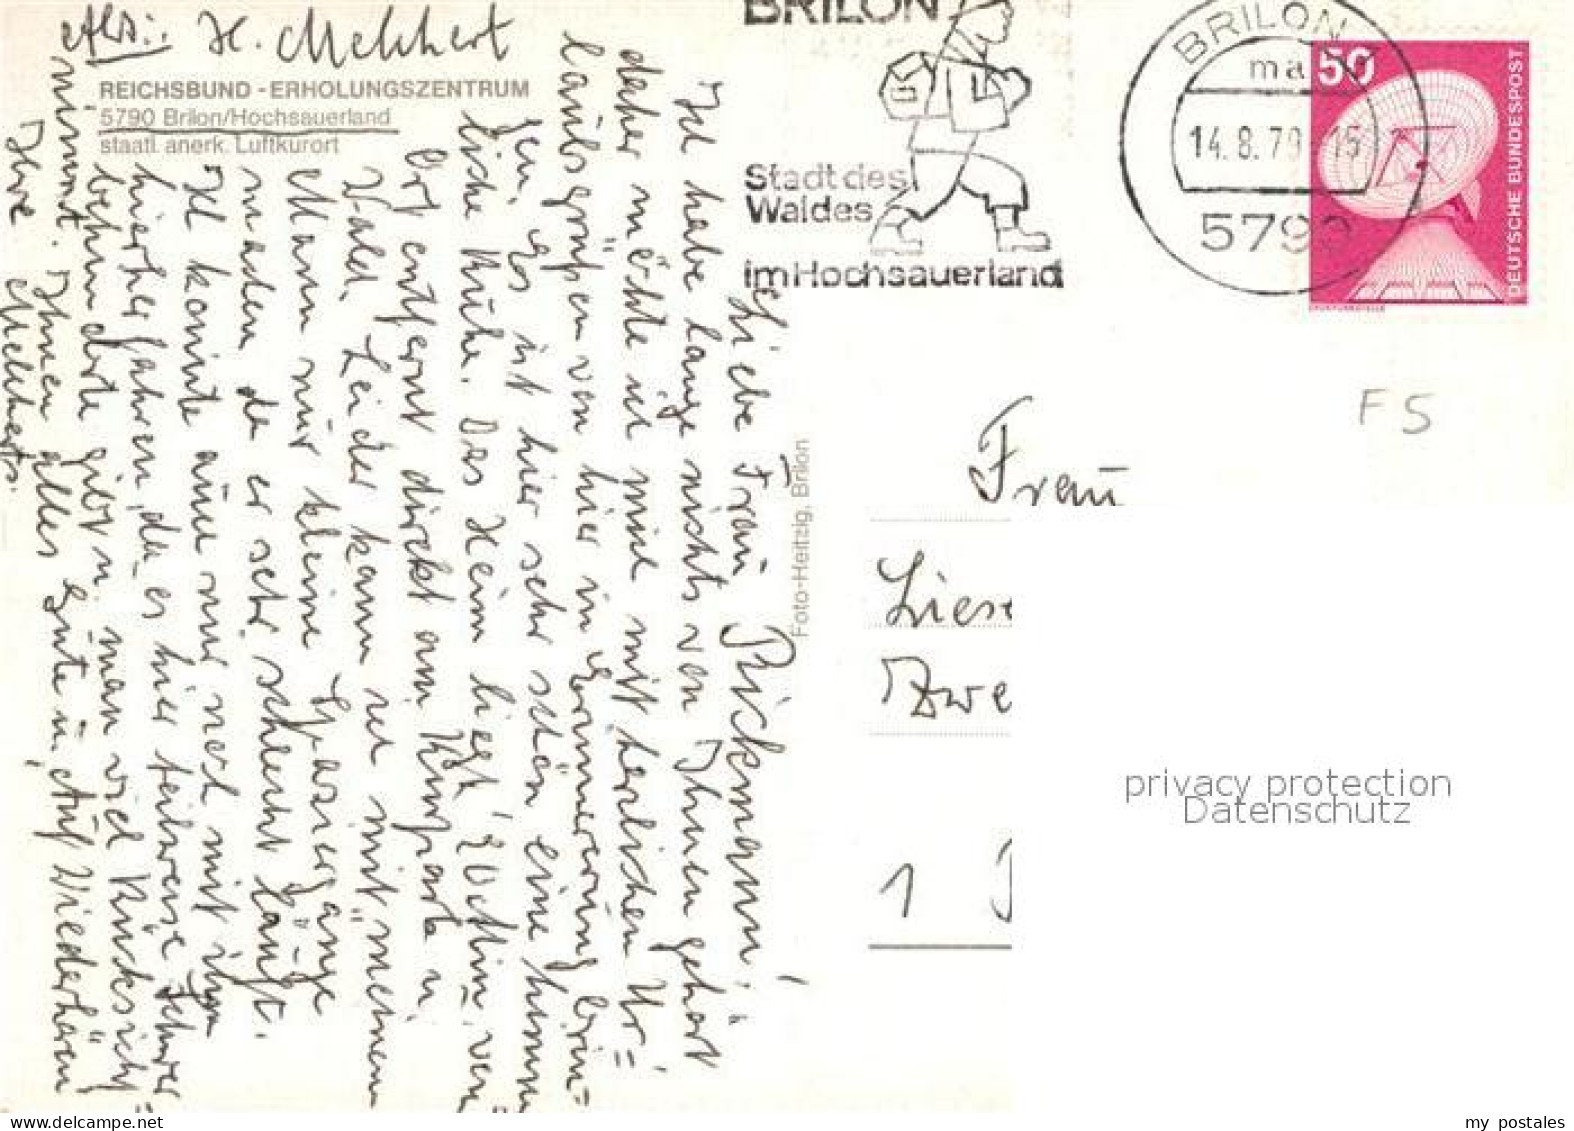 Abs.: H. Melchert
REICHSBUND - ERHOLUNGSZENTRUM
5790 Brilon/Hochsauerland
staatl. anerk. Luftkurort
Liebe Frau Rickmann!
Ich habe lange nichts von Ihnen gehört
daher möchte ich mich mit herzlichen Ur=
laubsgrüßen von hier in Erinnerung brin=
gen. Es ist hier sehr schön eine himm
lische Ruhe. Das Heim liegt 2 km von
Ort entfernt direkt am Kurpark u.
Wald. Leider kann ich mit meinem
Mann nur kleine Spaziergänge
machen da er sehr schlecht läuft.
Ich konnte auch nur noch mit ihm
hierher fahren, da es hier teilweise Schwer
behinderte gibt u. man viel Rücksicht
nimmt. Ihnen alles Gute u. Auf Wiederhören
Ihre Melcherts.
Foto-Heitzig, Brilon
BRILON
Stadt des
Waldes
im Hochsauerland
BRILON
ma
14.8.79 - 15
5790
50
DEUTSCHE BUNDESPOST
F 5
Frau
Liese
Zwe
1
privacy protection
Datenschutz
www.delcampe.net
my_postales